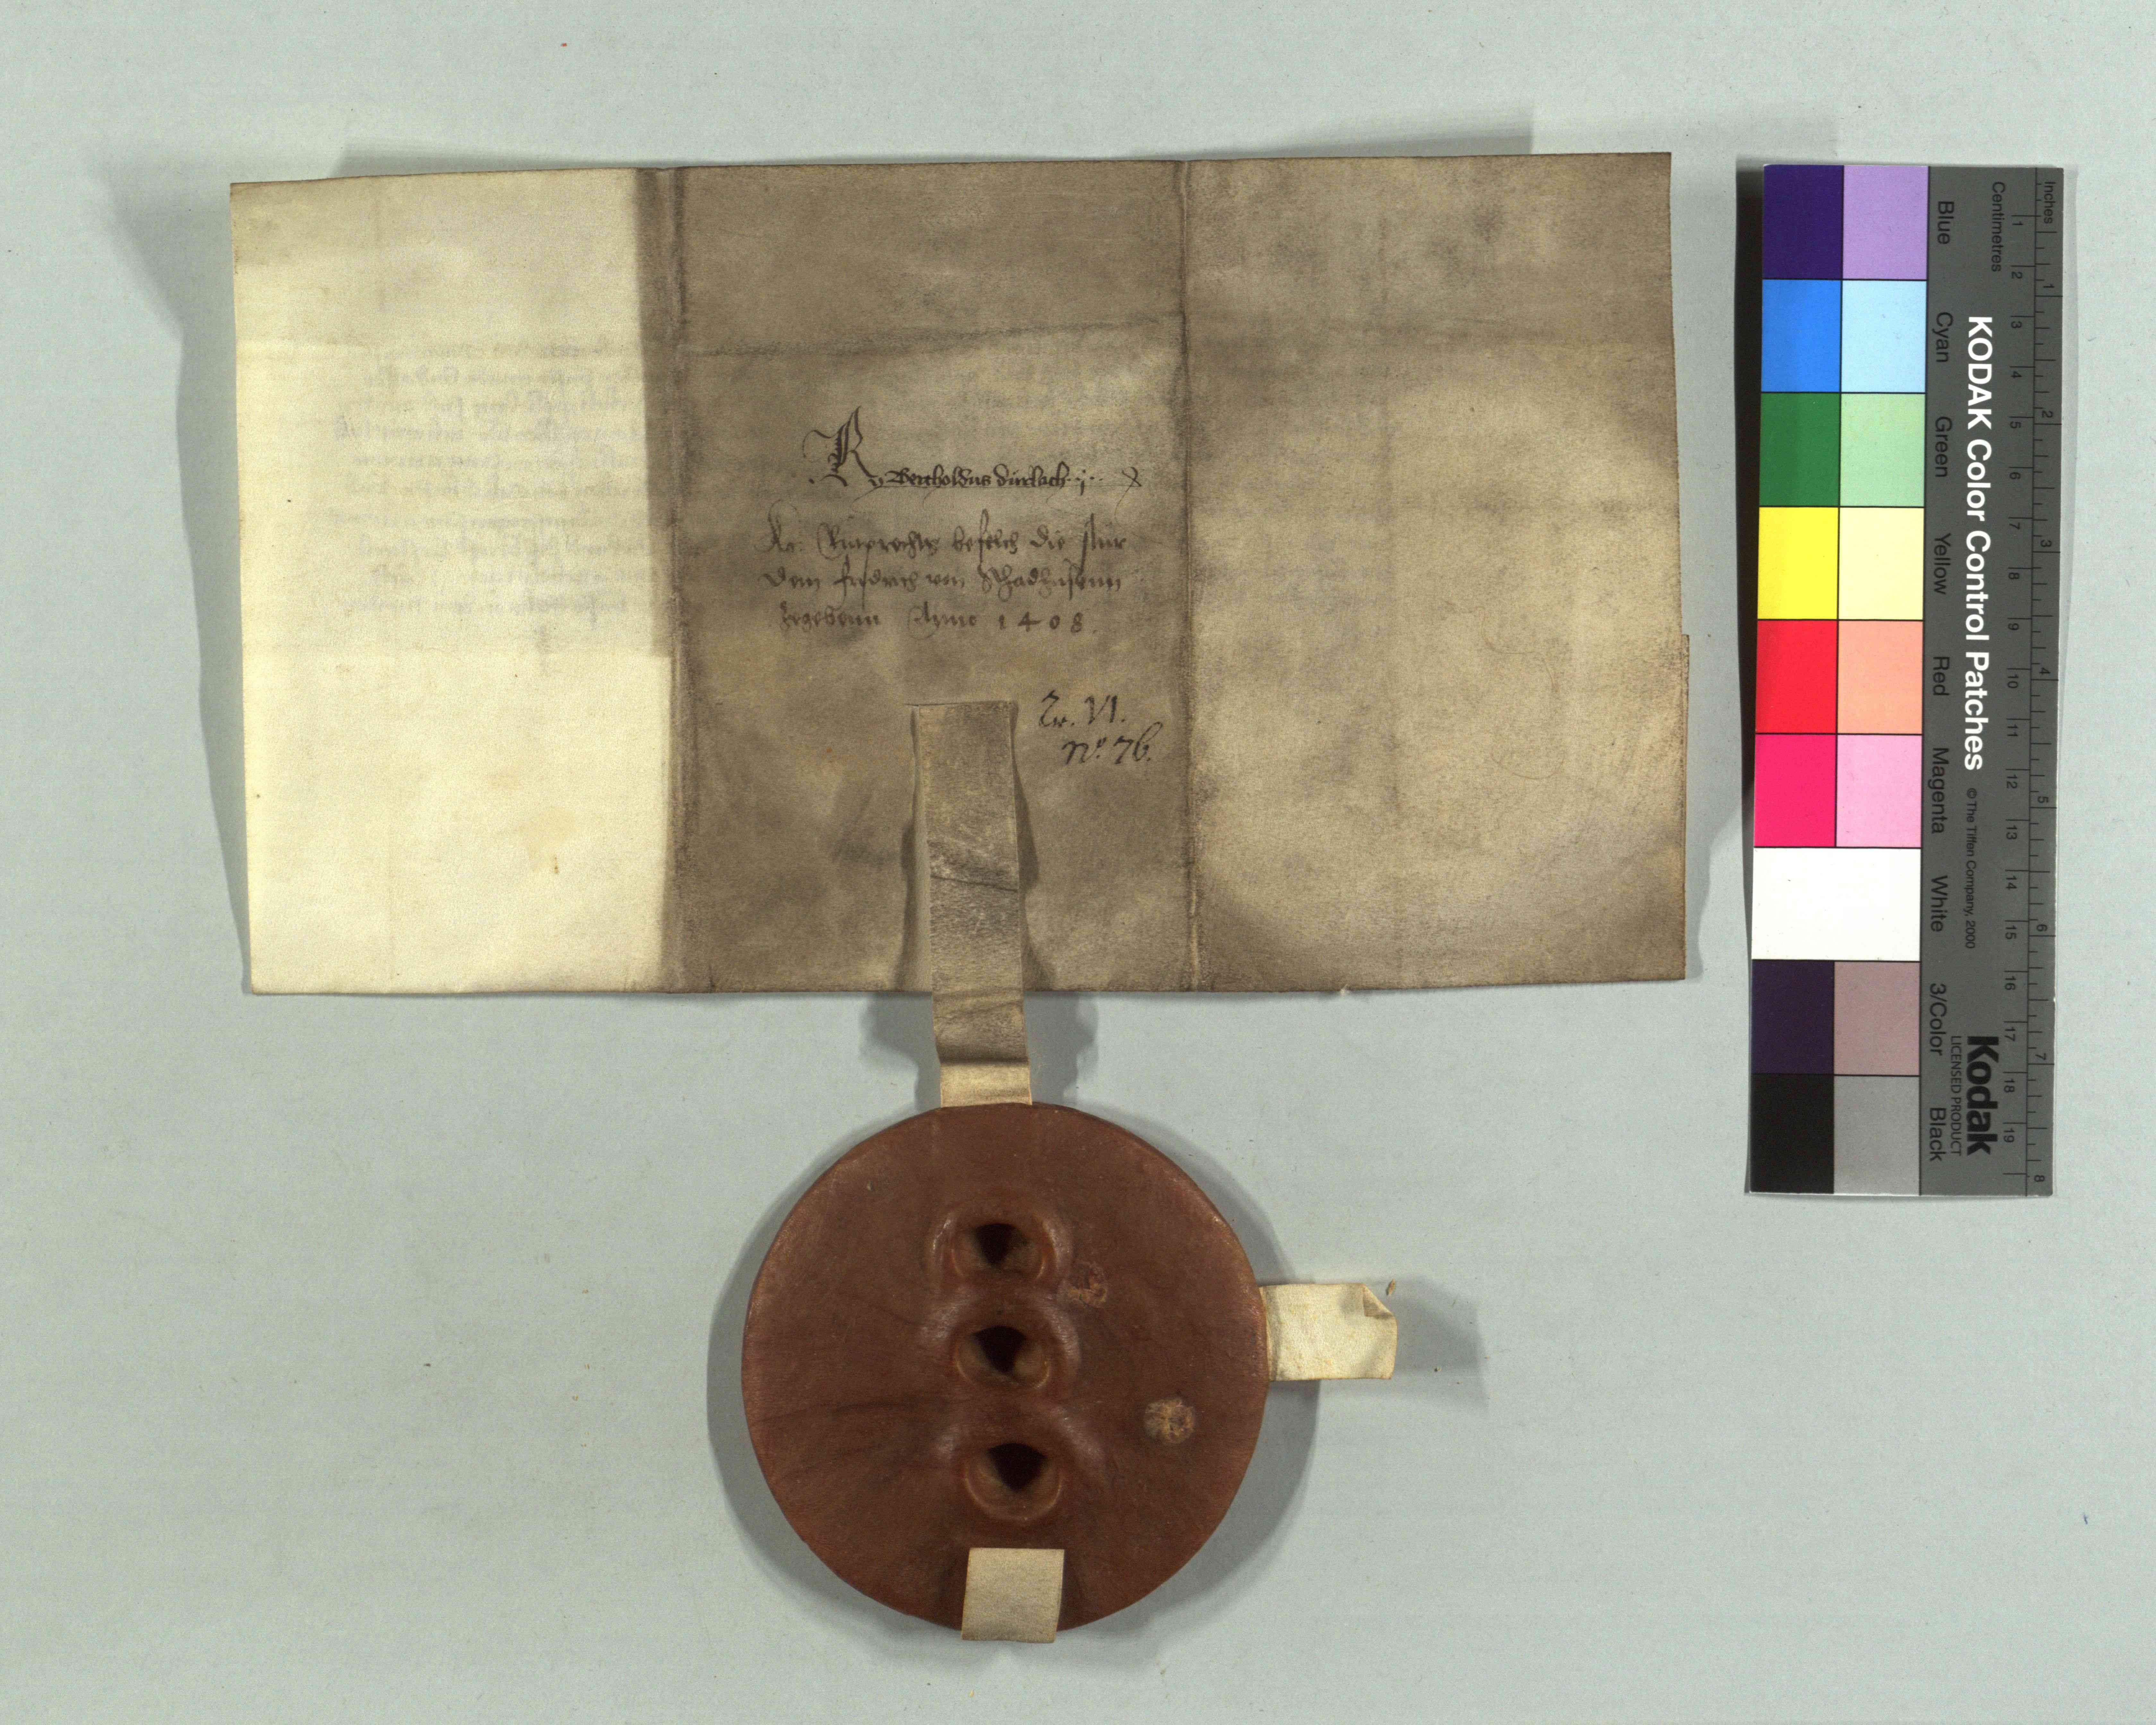 R
Bertholdus durlach
Ko: Ruprechts befelch die stur
dem fridrich von Schadhusenn
zegebenn Anno 1408.
Tr. VI.
No. 76.
KODAK Color Control Patches
©The Tiffen Company, 2000
Kodak
LICENSED PRODUCT
Inches 1 2 3 4 5 6 7 8
Centimetres 1 2 3 4 5 6 7 8 9 10 11 12 13 14 15 16 17 18 19
Blue Cyan Green Yellow Red Magenta White 3/Color Black